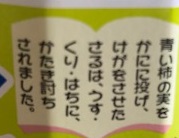 青い柿の実を
かにに投げ、
けがをさせた
さるは、うす・
くり・はちに、
かたき討ち
されました。